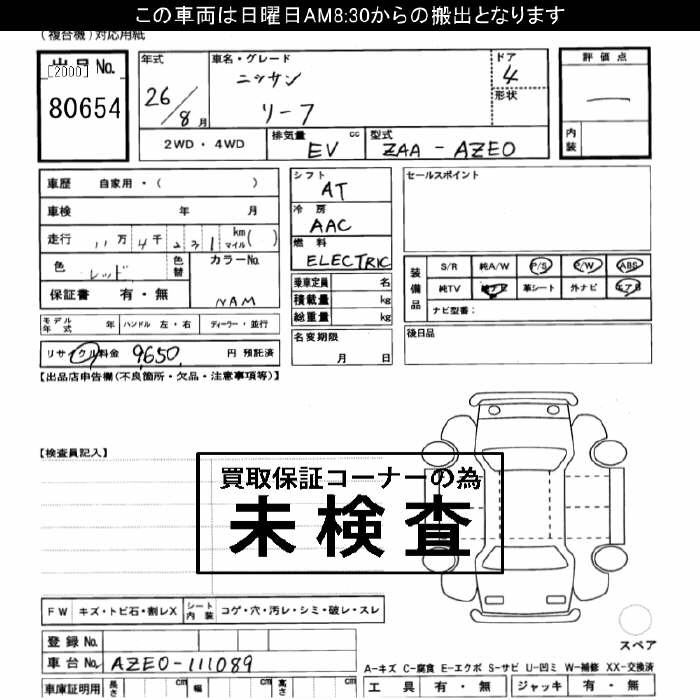 この車両は日曜日AM8:30からの搬出となります
(複合機)対応用紙
出品No.
[2000]
80654
年式
26/8月
車名・グレード
ニッサン
リーフ
ドア
4
形状
評価点
内装
2WD・4WD
排気量 cc
EV
型式
ZAA-AZE0
車歴 自家用・( )
車検 年 月
走行 11万4千231 km マイル( )
色 レッド 色替
カラーNo.
NAM
保証書 有・無
シフト
AT
冷房
AAC
燃料
ELECTRIC
乗車定員 名
積載量 kg
総重量 kg
名変期限
月 日
セールスポイント
装備品
S/R 純A/W P/S P/W ABS
純TV 純ナビ 革シート 外ナビ エアB
ナビ型番:
後日品
モデル年式 年 ハンドル 左・右 ディーラー・並行
リサイクル料金 9,650 円 預託済
【出品店申告欄(不良箇所・欠品・注意事項等)】
【検査員記入】
買取保証コーナーの為
未検査
FW キズ・トビ石・割レX シート内装 コゲ・穴・汚レ・シミ・破レ・スレ
登録No.
車台No. AZE0-111089
車庫証明用 長さ cm 幅 cm 高さ cm
スペア
A-キズ C-腐食 E-エクボ S-サビ U-凹ミ W-補修 XX-交換済
工具 有・無 ジャッキ 有・無